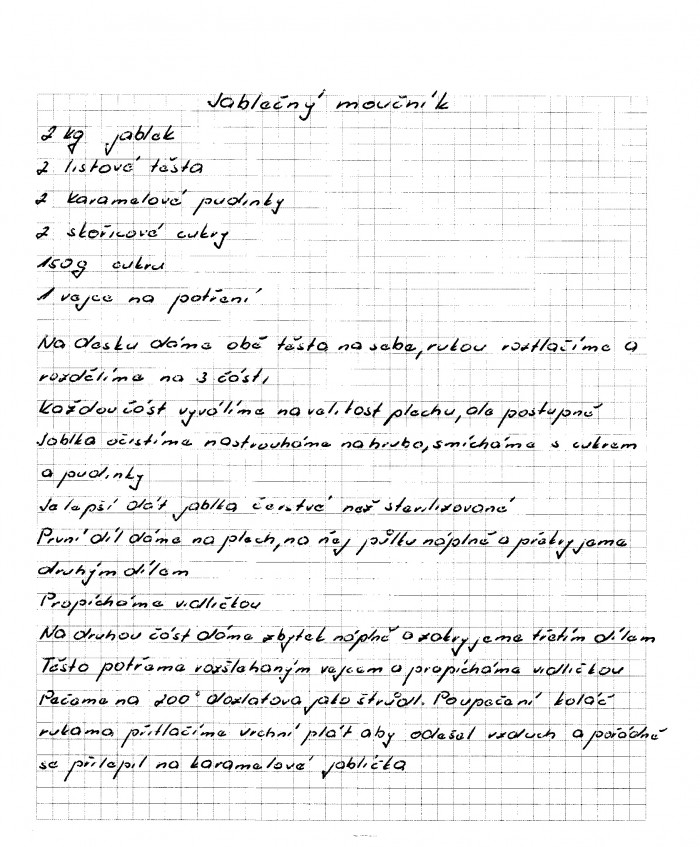 Jablečný moučník
2 kg jablek
2 listové těsta
2 karamelové pudinky
2 skořicové cukry
150g cukru
1 vejce na potření
Na desku dáme obě těsta na sebe, rukou roztlačíme a
rozdělíme na 3 části
Každou část vyválíme na velikost plechu, ale postupně
Jablka očistíme nastrouháme nahrubo, smícháme s cukrem
a pudinky
Je lepší dát jablka čerstvé než sterilizované
První díl dáme na plech, na něj půlku náplně a překryjeme
druhým dílem
Propícháme vidličkou
Na druhou část dáme zbytek náplně a zakryjeme třetím dílem
Těsto potřeme rozšlehaným vejcem a propícháme vidličkou
Pečeme na 200° dozlatova jako štrůdl. Poupečení koláč
rukama přitlačíme vrchní plát aby odešel vzduch a pořádně
se přilepil na karamelové jablíčka